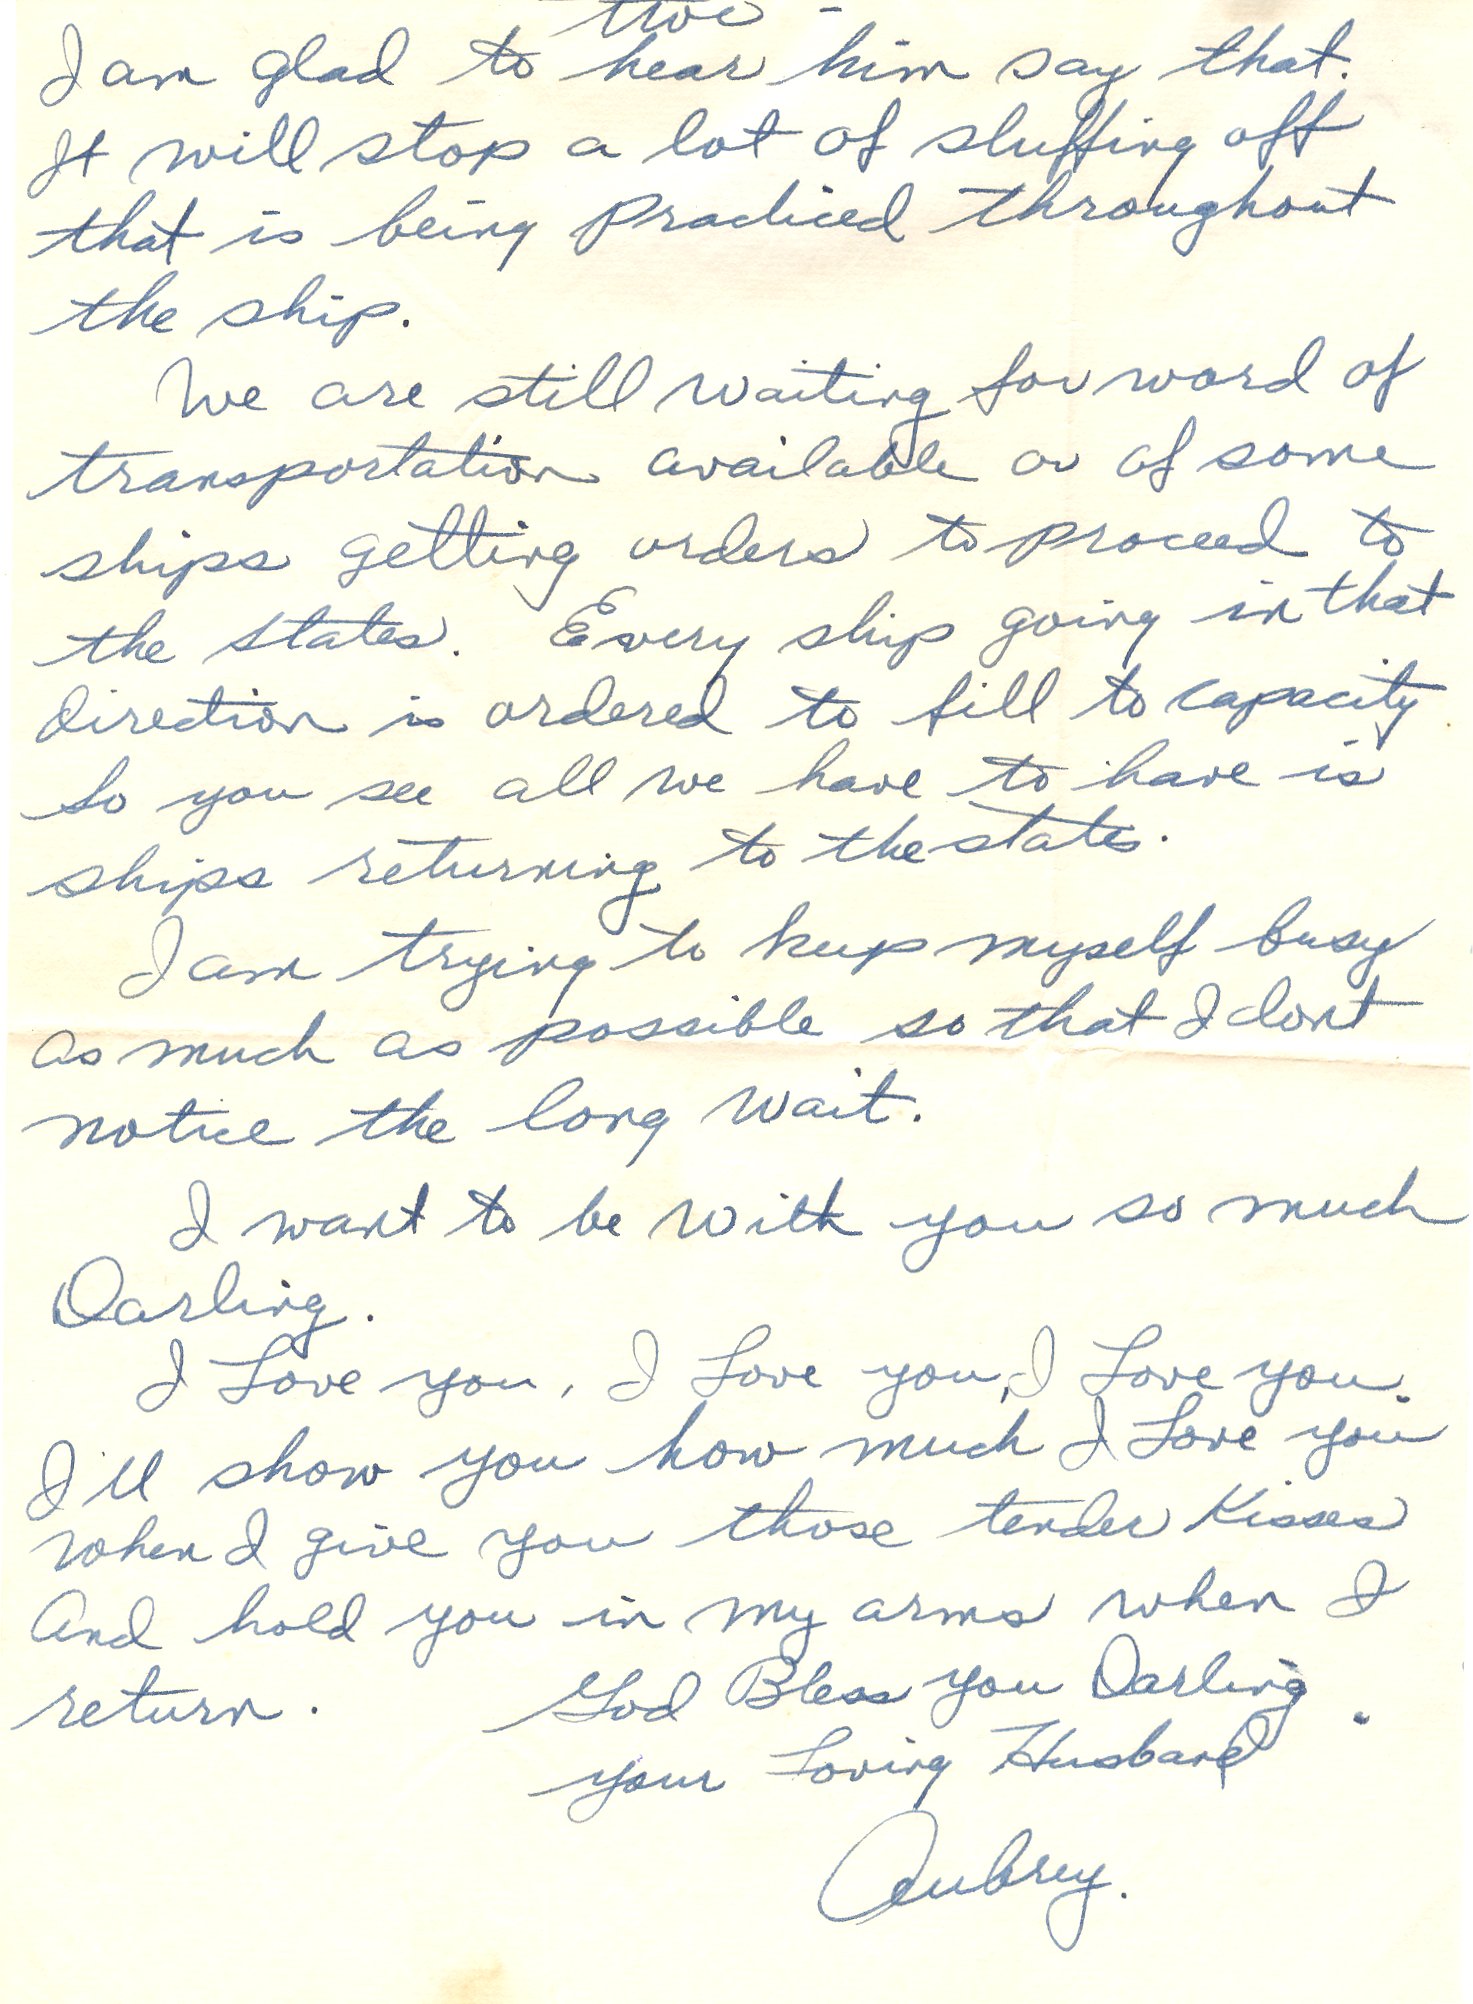 two -
I am glad to hear him say that.
It will stop a lot of sluffing off
that is being practiced throughout
the ship.
We are still waiting for word of
transportation available or of some
ships getting orders to proceed to
the states. Every ship going in that
direction is ordered to fill to capacity
So you see all we have to have is
ships returning to the states.
I am trying to keep myself busy
as much as possible so that I dont
notice the long wait.
I want to be with you so much
Darling.
I Love you, I Love you, I Love you.
I'll show you how much I Love you
when I give you those tender Kisses
And hold you in my arms when I
return.
God Bless you Darling.
your Loving Husband
Aubrey.